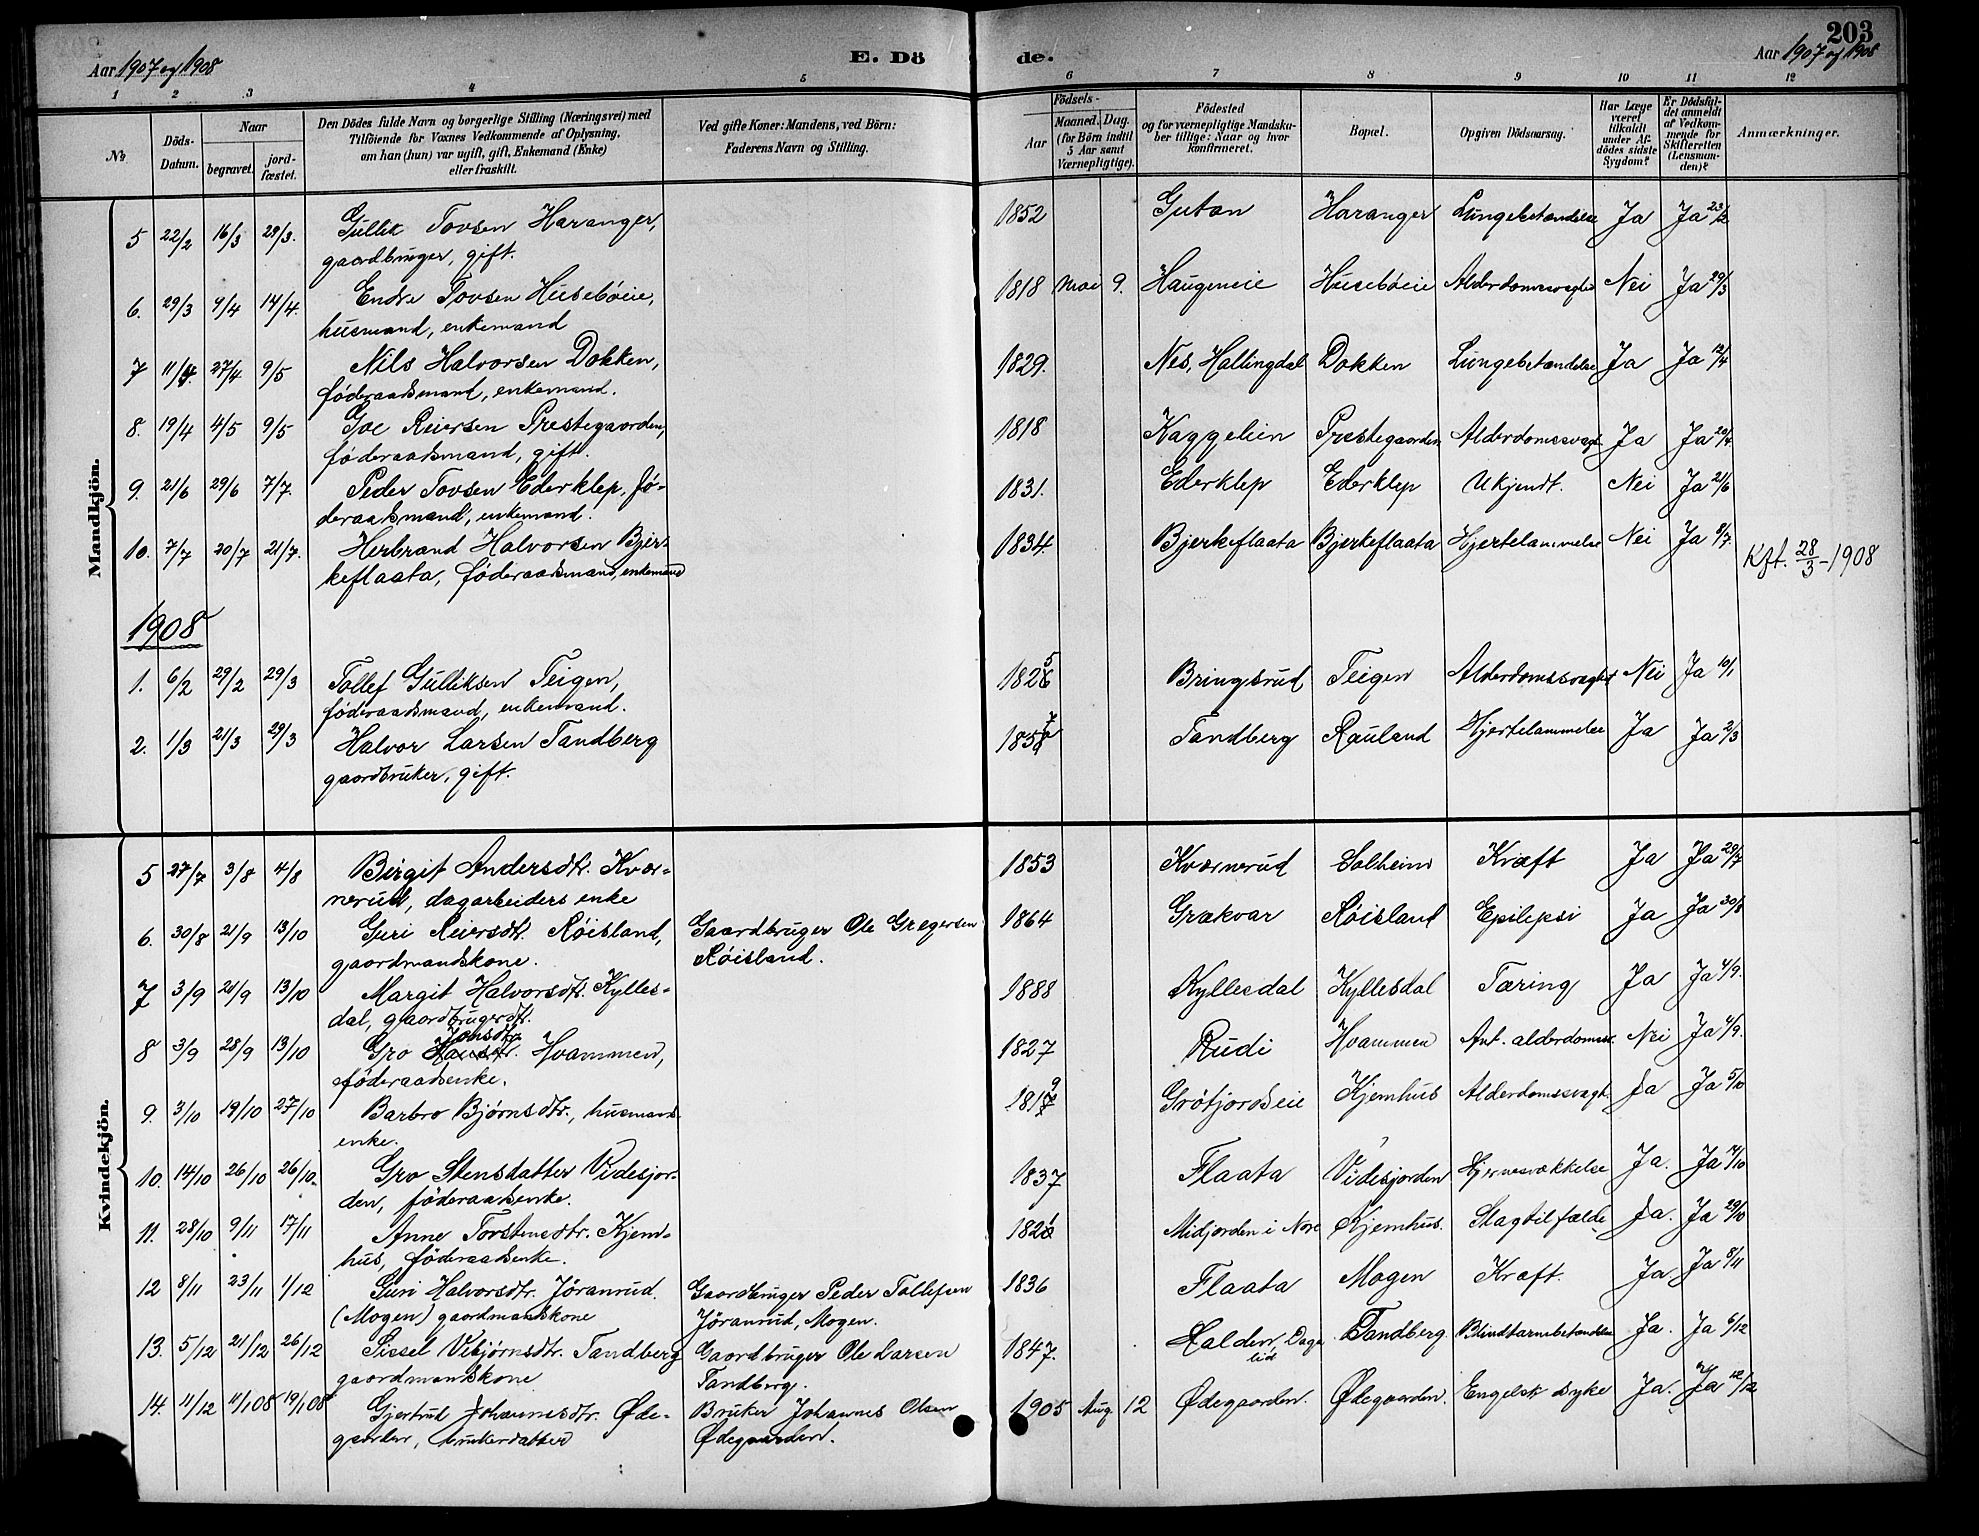 203
Aar 1907 og 1908
E. Dö
de.
Aar 1907 og 1908
1 2 3 4 5 6 7 8 9 10 11 12
No
Döds-Datum.
Naar
begravet.
jord-fæstet.
Den Dödes fulde Navn og borgerlige Stilling (Næringsvei) med
Tilföiende for Voxnes Vedkommende af Oplysning,
om han (hun) var ugift, gift, Enkemand (Enke)
eller fraskilt.
Ved gifte Koner: Mandens, ved Börn:
Faderens Navn og Stilling.
Födsels-
Aar
Maaned. Dag.
(for Börn indtil
5 Aar samt
Værnepligtige).
Födested
og for værnepligtige Mandska-
ber tillige: Naar og hvor
konfirmeret.
Bopæl.
Opgiven Dödsaarsag.
Har Læge
været
tilkaldt
under Af-
dödes sidste
Sygdom?
Er Dödsfal-
det anmeldt
af Vedkom-
mende for
Skifteretten
(Lensman-
den)?
Anmærkninger.
Mandkjön.
5 22/2 16/3 29/3. Gullik Tovsen Haranger, 1852 Guton Haranger Lungebetændelse Ja Ja 23/2
gaardbruger, gift.
6. 29/3 9/4 14/4. Endre Tovsen Husebøeie, 1818 Mai 9. Haugeneie Husebøeie Alderdomssvaghed Nei Ja 29/3
husmand, enkemand
7 11/4. 27/4 9/5 Nils Halvorsen Dokken, 1829. Nes, Hallingdal Dokken Lungebetændelse Ja Ja 12/4
føderaadsmand, enkemand.
8. 19/4 4/5 9/5 Goe Reiersen Prestegaarden, 1818 Kaggelien Prestegaarden Alderdomssvagh. Ja Ja 20/4
føderaadsmand, gift.
9. 21/6 29/6 7/7. Peder Tovsen Ederklep, fø- 1831. Ederklep Ederklep Ukjendt. Nei Ja 21/6
deraadsmand, enkemand.
10. 7/7 20/7 21/7. Herbrand Halvorsen Bjer- 1834. Bjerkeflaata Bjerkeflaata Hjertelammelse Nei Ja 8/7
keflaata, føderaadsmand, enkemand
Kft. 28/3-1908
1908
1. 6/2 29/2 29/3 Tollef Gulliksen Teigen, 1825 Bringsrud Teigen Alderdomssvaghed Nei Ja 10/1
føderaadsmand, enkemand.
2. 1/3 21/3 29/3 Halvor Larsen Tandberg 1857 Tandberg Rauland Hjertelammelse Ja Ja 2/3
gaardbruker, gift.
Kvindekjön.
5 27/7 3/8 4/8 Birgit Andersdtr. Kvær- 1853 Kværnerud Solheim Kræft Ja Ja 29/7
nerud, dagarbeiders enke
6. 30/8 21/9 13/10 Guri Reiersdtr. Røisland, Gaardbruger Ole Gregersen 1864 Grækvar Røisland Epilepsi Ja Ja 30/8
gaardmandskone. Røisland.
7 3/9 21/9 13/10 Margit Halvorsdtr. Kylles- 1888 Kyllesdal Kyllesdal Tæring Ja Ja 4/9.
dal, gaardbrugerdtr.
8 3/9 28/9 13/10 Gro Jonsdtr. Hvammen, 1827 Rudi Hvammen Ant. alderdomssv. Nei Ja 4/9.
føderaadsenke.
9. 3/10 19/10 27/10 Barbro Bjørnsdtr., husmands 1819 Grøtjordseie Kjemhus Alderdomssvagh. Ja Ja 5/10
enke.
10. 14/10 26/10 26/10 Gro Stensdatter Videsjor- 1837 Flaata Videsjorden Hjernesvækkelse Ja. Ja 14/10
den, føderaadsenke.
11. 28/10 9/11 17/11 Anne Torstensdtr. Kjem- 1826 Midjorden i Nore Kjemhus. Slagtilfælde Ja. Ja 29/10
hus, føderaadsenke.
12 8/11 23/11 1/12 Guri Halvorsdtr. Jöranrud. Gaardbruger Peder Tollefsen 1836 Flaata Mogen Kræft. Ja Ja 8/11
(Mogen) gaardmandskone Jöranrud, Mogen.
13. 5/12 21/12 26/12 Sissel Vebjørnsdtr. Tandberg Gaardbruger Ole Larsen 1847. Halden, Dagalid Tandberg Blindtarmsbetændelse Ja. Ja 6/12
gaardmandskone Tandberg.
14. 11/12 11/1 08 19/1 08 Gjertrud Johannesdtr. Øde- Bruker Johannes Olsen 1905 Aug. 12 Ødegaarden. Ødegaarden. Engelsk syke Ja. Ja 12/12
gaarden, brukerdatter Ødegaarden.